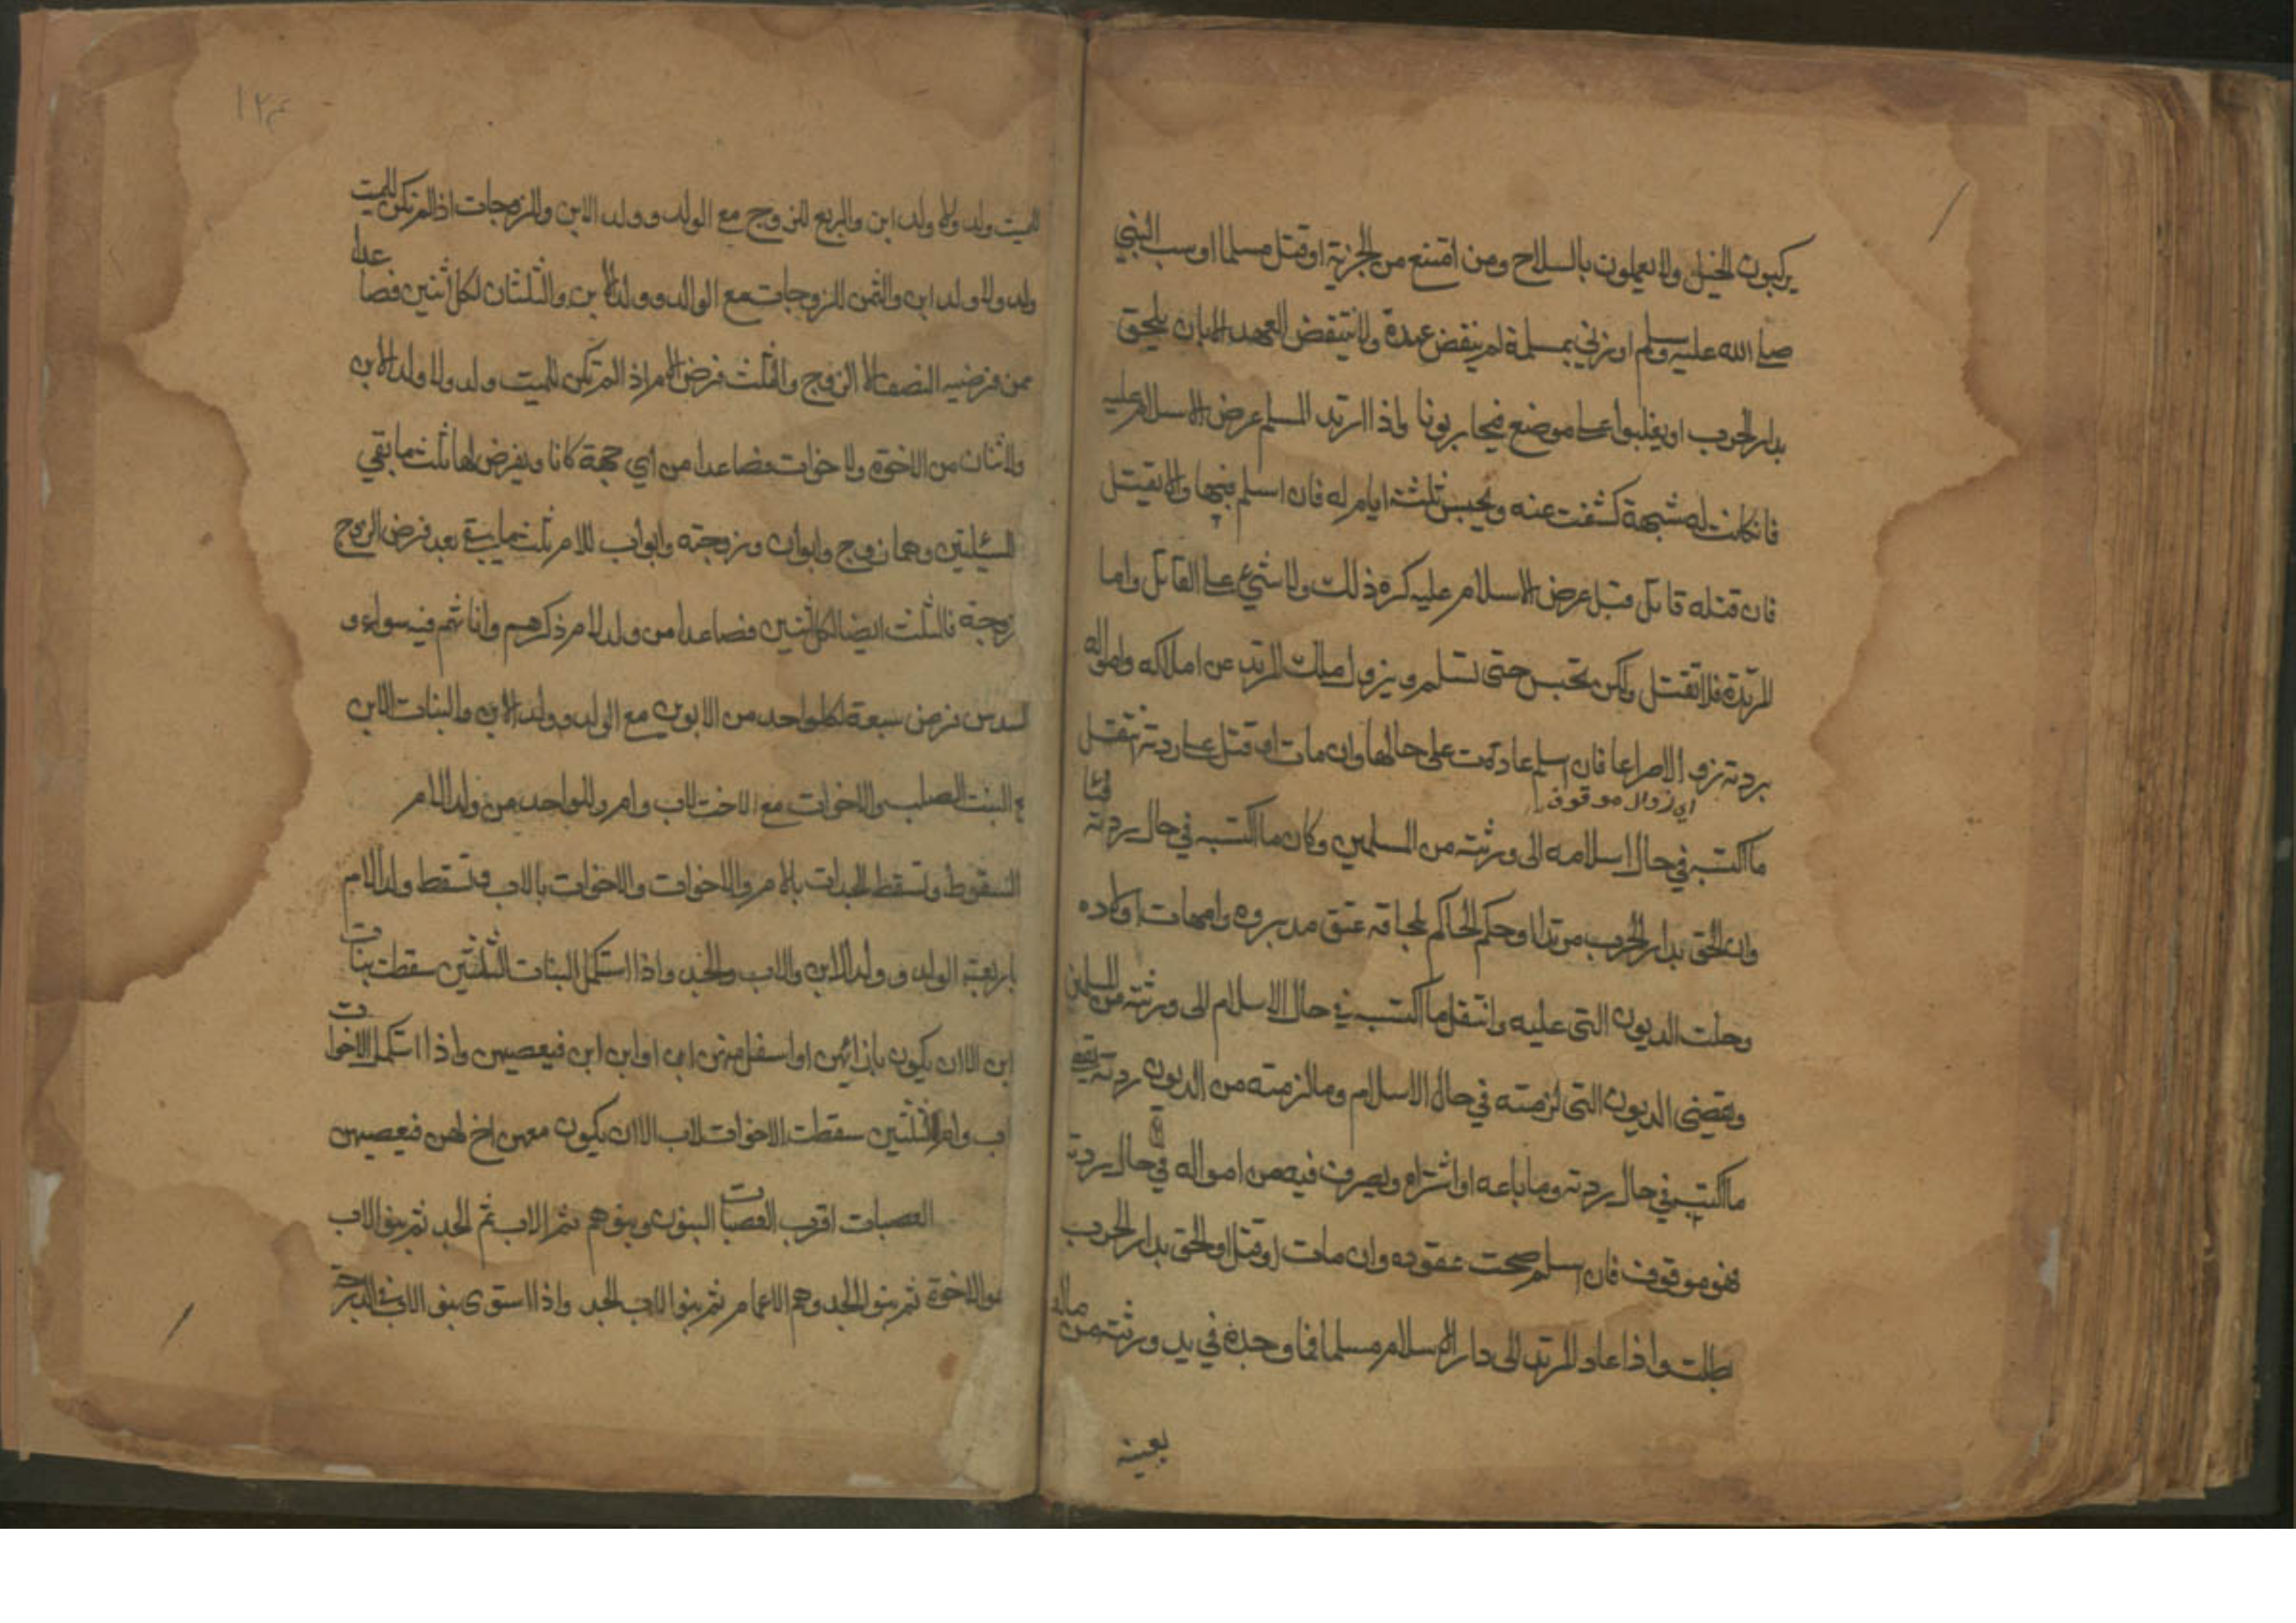 يركبون الخيل ولا يعملون بالسلاح ومن امتنع من الجزية او قتل مسلما او سب النبي
صلى الله عليه وسلم او زنى بمسلمة لم ينقض عهدة ولا ينتقض العهد الا بان يلحق
بدار الحرب او يغلبوا على موضع فيحاربونا واذا ارتد المسلم عرض الاسلام عليه
فانكانت له شبهة كشفت عنه ويحبس ثلثة ايام له فان اسلم فبها والا يقتل
فان قتله قاتل قبل عرض الاسلام عليه كره ذلك ولا شيء على القاتل واما
المرتدة فلا تقتل ولكن تحبس حتى تسلم ويزول ملك المرتد عن املاكه وامواله
بردته زوالا مراعا فان اسلم عادت على حالها وان مات او قتل على ردته انتقل
اي زوال موقوف
ما اكتسبه في حال اسلامه الى ورثته من المسلمين وكان ما اكتسبه في حال ردته فيئا
وان لحق بدار الحرب مرتدا وحكم الحاكم بلحاقه عتق مدبروه وامهات اولاده
وحلت الديون التي عليه وانتقل ما اكتسبه في حال الاسلام الى ورثته من المسلمين
ويقضى الديون التي لزمته في حال الاسلام وما لزمته من الديون ردته يقضى
ما اكتسبه في حال ردته وما باعه او اشتراه وتصرف فيه من امواله في حال ردته
فهو موقوف فان اسلم صحت عقوده وان مات او قتل او لحق بدار الحرب
بطلت واذا عاد المرتد الى دار الاسلام مسلما فما وجده في يد ورثته من ماله
بعينه
١٢٤
للميت ولد ولا ولد ابن والربع للزوج مع الولد وولد الابن وللزوجات اذا لم تكن للميت
ولد ولا ولد ابن والثمن للزوجات مع الولد وولد الابن والثلثان لكل اثنين فصاعدا
ممن فرضه النصف الا الزوج والثلث فرض الام اذا لم تكن للميت ولد ولا ولد الابن
ولا اثنان من الاخوة ولا خوات فصاعدا من اي جهة كانا ويفرض لها ثلث ما بقي
المسئلتين وهما زوج وابوان وزوجته وابواب للام ثلث ما بقي بعد فرض الزوج
زوجة فالثلث ايضا لكل اثنين فصاعدا من ولد الام ذكرهم واناثهم فيه سواء و
السدس فرض سبعة لكل واحد من الابوين مع الولد وولد الابن والبنات الابن
مع البنت الصلب والاخوات مع الاخت لاب وام وللواحد من ولد الام
السقوط وتسقط الجدات بالام والاخوات والاخوات بالاب وتسقط ولد الام
باربعة الولد وولد الابن والاب والجد واذا استكمل البنات الثلثين سقطت بنات
ابن الا ان يكون بازائهن او اسفل منهن ابن او ابن ابن فيعصبهن واذا استكمل الاخوات
اب وام الثلثين سقطت الاخوات لاب الا ان يكون معهن اخ لهن فيعصبهن
العصبات اقرب العصبات البنون وبنوهم ثم الاب ثم الجد ثم بنو الاب
هو الاخوة ثم بنو الجد وهم الاعمام ثم بنو الاب الجد واذا استوى بنو الاب في الدرجة